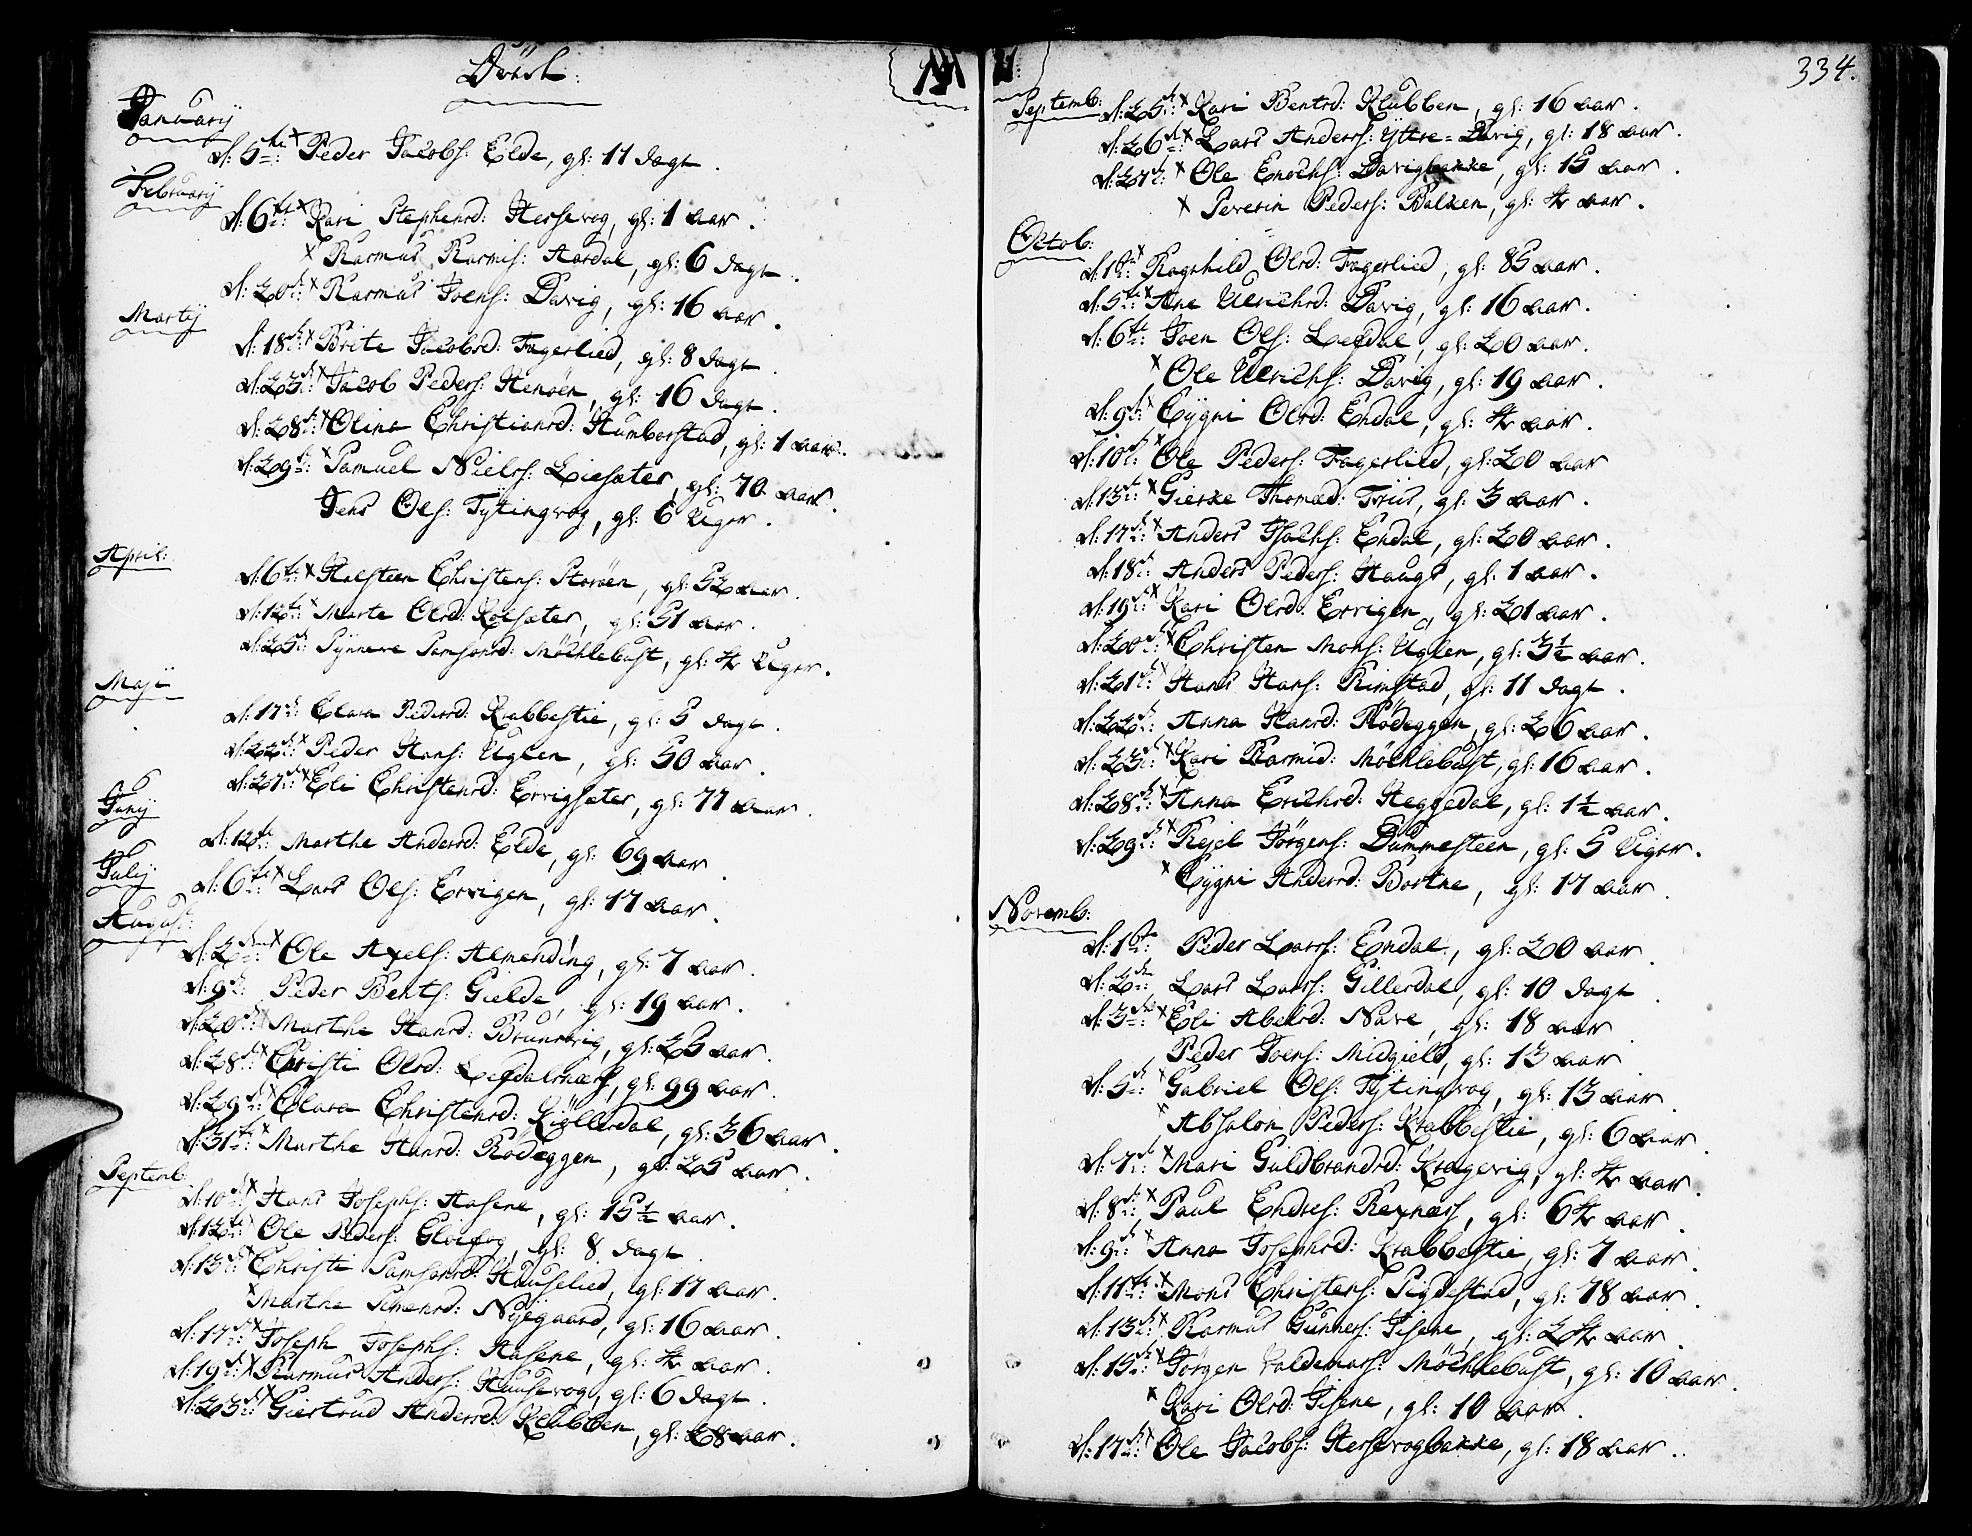 Döde:
Januarij
d: 5te: x Peder Jacobs: Elde, gl: 11 dage.
February
d: 6te: x Kari Stephensd: Hessevog, gl: 1 aar.
x Rasmus Rasmis: Aardal, gl: 6 dage.
d: 20de: x Rasmus Joens: Davig, gl: 16 aar.
Martij
d: 18de: x Brite Jacobsd: Fagerlied, gl: 8 dage.
d: 23de: x Jacob Peders: Henöen, gl: 16 dage.
d: 28de: x Olina Christiansd: Humborstad, gl: 1 aar.
d: 29de: x Samuel Niels: Liesæter, gl: 70 aar.
Jens Ols: Tytingvog, gl: 6 Uger.
April:
d: 6te: x Halsteen Christens: Storöen, gl: 52 aar.
d: 12te: x Marte Olsd: Rotsæter, gl: 51 aar.
d: 25de: Synneve Samsonsd: Möchlebust, gl: 4 Uger.
Maji
d: 17de: Clara Pedersd: Krabbestie, gl: 5 dage.
d: 22de: x Peder Hans: Uglen, gl: 50 aar.
d: 27de: x Eli Christensd: Ervigsæter, gl: 77 aar.
Junij
d: 12te: Marthe Andersd: Elde, gl: 69 aar.
Julij
d: 6te: x Lars Ols: Ervigen, gl: 17 aar.
August:
d: 2den: x Ole Axels: Almending, gl: 7 aar.
d: 9de: Peder Bents: Gielde, gl: 19 aar.
d: 20de: x Marthe Hansd: Brunsvig, gl: 25 aar.
d: 28de: x Christi Olsd: Lefdalsnæss, gl: 99 aar.
d: 29de: x Clara Christensd: Giöllerdal, gl: 36 aar.
d: 31te: x Marthe Hansd: Rödeggen, gl: 25 aar.
Septemb:
d: 10de: x Hans Josephs: Aasene, gl: 15½ aar.
d: 12te: Ole Peders: gl: 8 dage.
d: 13de: x Christi Samsonsd: Hauselied, gl: 17 aar.
x Marthe Simensd: Nygaard, gl: 16 aar.
d: 17de: x Joseph Josephs: Aasene, gl: 4 aar.
d: 19de: x Rasmus Anders: Hausevog, gl: 6 dage.
d: 23de: x Giertrud Andersd: Klubben, gl: 28 aar.
334.
Septemb:
d: 25de: x Kari Bentsd: Klubben, gl: 16 aar.
d: 26de: x Lars Anders: Ytre=Davig, gl: 18 aar.
d: 27de: x Ole Enochs: Davigbakke, gl: 15 aar.
x Severin Peders: Balken, gl: 4 aar.
Octob:
d: 1te: x Ragnhild Olsd: Fagerlied, gl: 85 aar.
d: 5te: x Ane Ulrichsd: Davig, gl: 16 aar.
d: 6te: Joen Ols: Lefdal, gl: 20 aar.
x Ole Ulrichs: Davig, gl: 19 aar.
d: 9de: x Cygni Olsd: Endal, gl: 4 aar.
d: 10de: x Ole Peders: Fagerlied, gl: 20 aar
d: 13de: x Gierke Thomæd: Friis, gl: 3 aar.
d: 17de: x Anders Isachs: Endal, gl: 20 aar.
d: 18de: Anders Peders: Hauge, gl: 1 aar.
d: 19de: x Kari Olsd: Ervigen, gl: 21 aar.
d: 20de: x Christen Mons: Uglen, gl: 3½ aar.
d: 21de: Hans Hans: Rimstad, gl: 11 dage.
d: 22de: Anna Hansd: Rödeggen, gl: 26 aar.
d: 23de: x Kari Rasmisd: Möchlebust, gl: 16 aar.
d: 28de: x Anna Erichsd: Heggedal, gl: 1½ aar.
d: 29de: x Kejel Jörgens: Dummesteen, gl: 5 Uger.
x Cygni Andersd: Bortne, gl: 17 aar.
Novemb:
d: 1te: Peder Lars: Endal, gl: 20 aar.
d: 2den: Lars Lars: Gillerdal, gl: 10 dage.
d: 3die: x Eli Abelsd: Nave, gl: 18 aar
Peder Joens: Midgield, gl: 13 aar
d: 5te: x Gabriel Ols: Tytingvog, gl: 13 aar.
x Absalon Peders: Krabbestie, gl: 6 aar
d: 7de: x Mari Guldbrandsd: Kragevig, gl: 4 aar.
d: 8de: x Paul Endres: Raxnæss, gl: 64 aar.
d: 9de: x Anna Josephsd: Krabbestie, gl: 7 aar.
d: 11te: x Mons Christens: Sigdestad, gl: 78 aar.
d: 13de: x Rasmus Gunners: Gisene, gl: 24 aar.
d: 15de: x Jörgen Valdemars: Möchlebust, gl: 10 aar.
x Kari Olsd: Gisene, gl: 10 aar.
d: 17de: x Ole Jacobs: Hessevogbakke, gl: 18 aar.